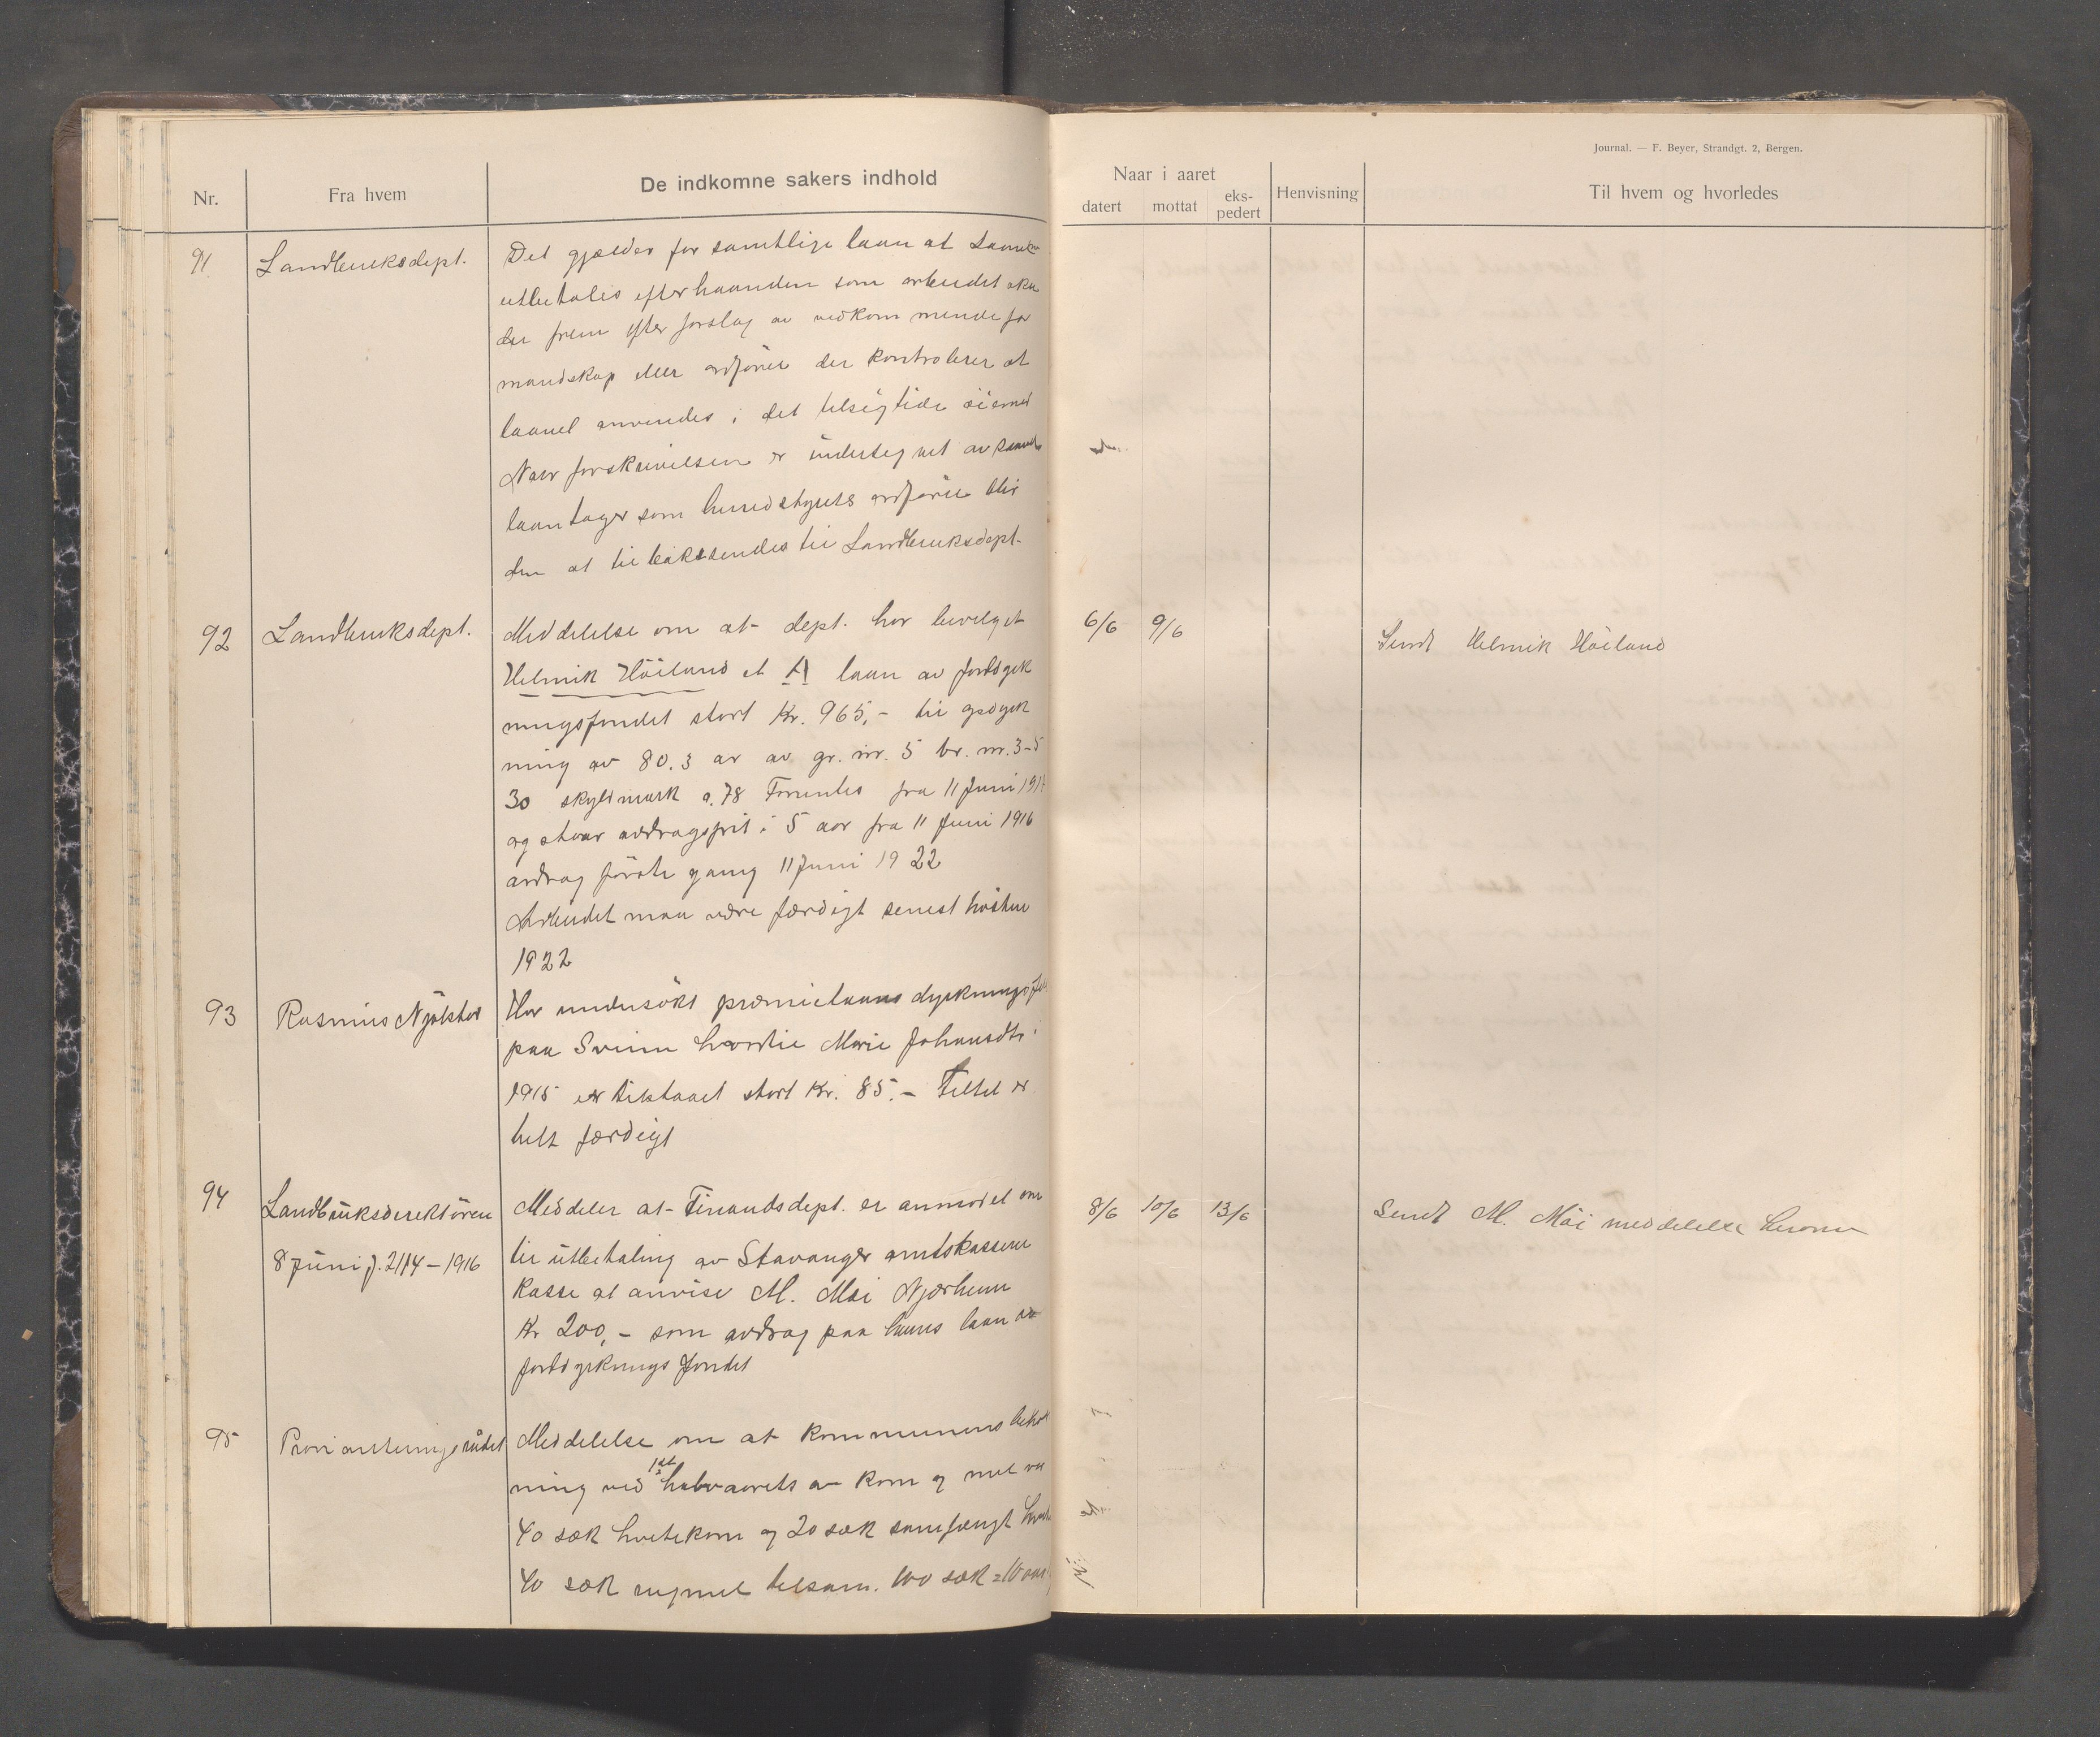 Journal. — F. Beyer, Strandgt. 2, Bergen.
Nr. Fra hvem De indkomne sakers indhold Naar i aaret datert mottat eks-pedert Henvisning Til hvem og hvorledes
91 Landbruksdept. Det gjælder for samtlige laan at laanet
utbetales efterhaanden som arbeidet skri
der frem efter forslag av vedkommende for
mandskap eller ordfører der kontrolerer at
laanet anvendes i det tilsigtede øiemed
Naar forskrivelsen er undertegnet av saavel
laantager som herredstyrets ordfører blir
den at tilbakesendes til Landbruksdept.
92 Landbruksdept. Meddelelse om at dept. har bevilget 6/6 9/6 Sendt Helmik Høiland
Helmik Høiland et A laan av jorddyrk
ningsfondet stort Kr. 965,- til opdyrk
ning av 80.3 ar av gr. nr. 5 br. nr. 3-5
30 skyldmark 9.78 Forrentes fra 11 Juni
og staar avdragsfrit i 5 aar fra 11 Juni 1916
avdrag første gang 11 Juni 1922
Arbeidet maa være færdigt senest høsten
1922
93 Rasmus Njølstad Har undersøkt præmielaans dyrkningsfelt
paa hvortil Marie Johansdtr i
1915 er tilstaaet stort Kr. 85.- Feltet er
helt færdigt
94 Landbruksdirektøren Meddeler at Finantsdept. er anmodet om 8/6 10/6 13/6 Sendt M. Møi meddelelse herom
8 Juni J. 2114 - 1916 til utbetaling av Stavanger amtskasserer
Kasse at anvise M. Møi Nærheim
Kr 200,- som avdrag paa hans laan av
jorddyrkningsfondet
95 Provianteringsrådet Meddelelse om at kommunens behold
ning ved 1st halvaarets av korn og mel var
40 sæk hvetekorn og 20 sæk samfængt hvete
40 sæk rugmel tilsam. 100 sæk